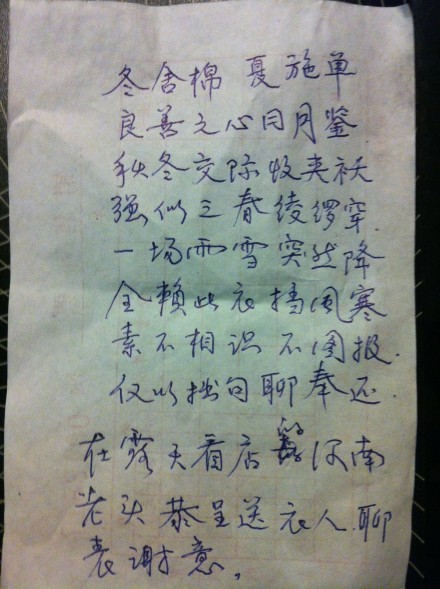 冬舍棉 夏施单
良善之心日月鉴
秋冬交际收夹袄
强似三春绫缪穿
一场雨雪突然降
全赖此衣挡风寒
素不相识不图报
仅以拙句聊奉还
在露天看店 河南
老头恭呈送衣人.聊
表谢意。